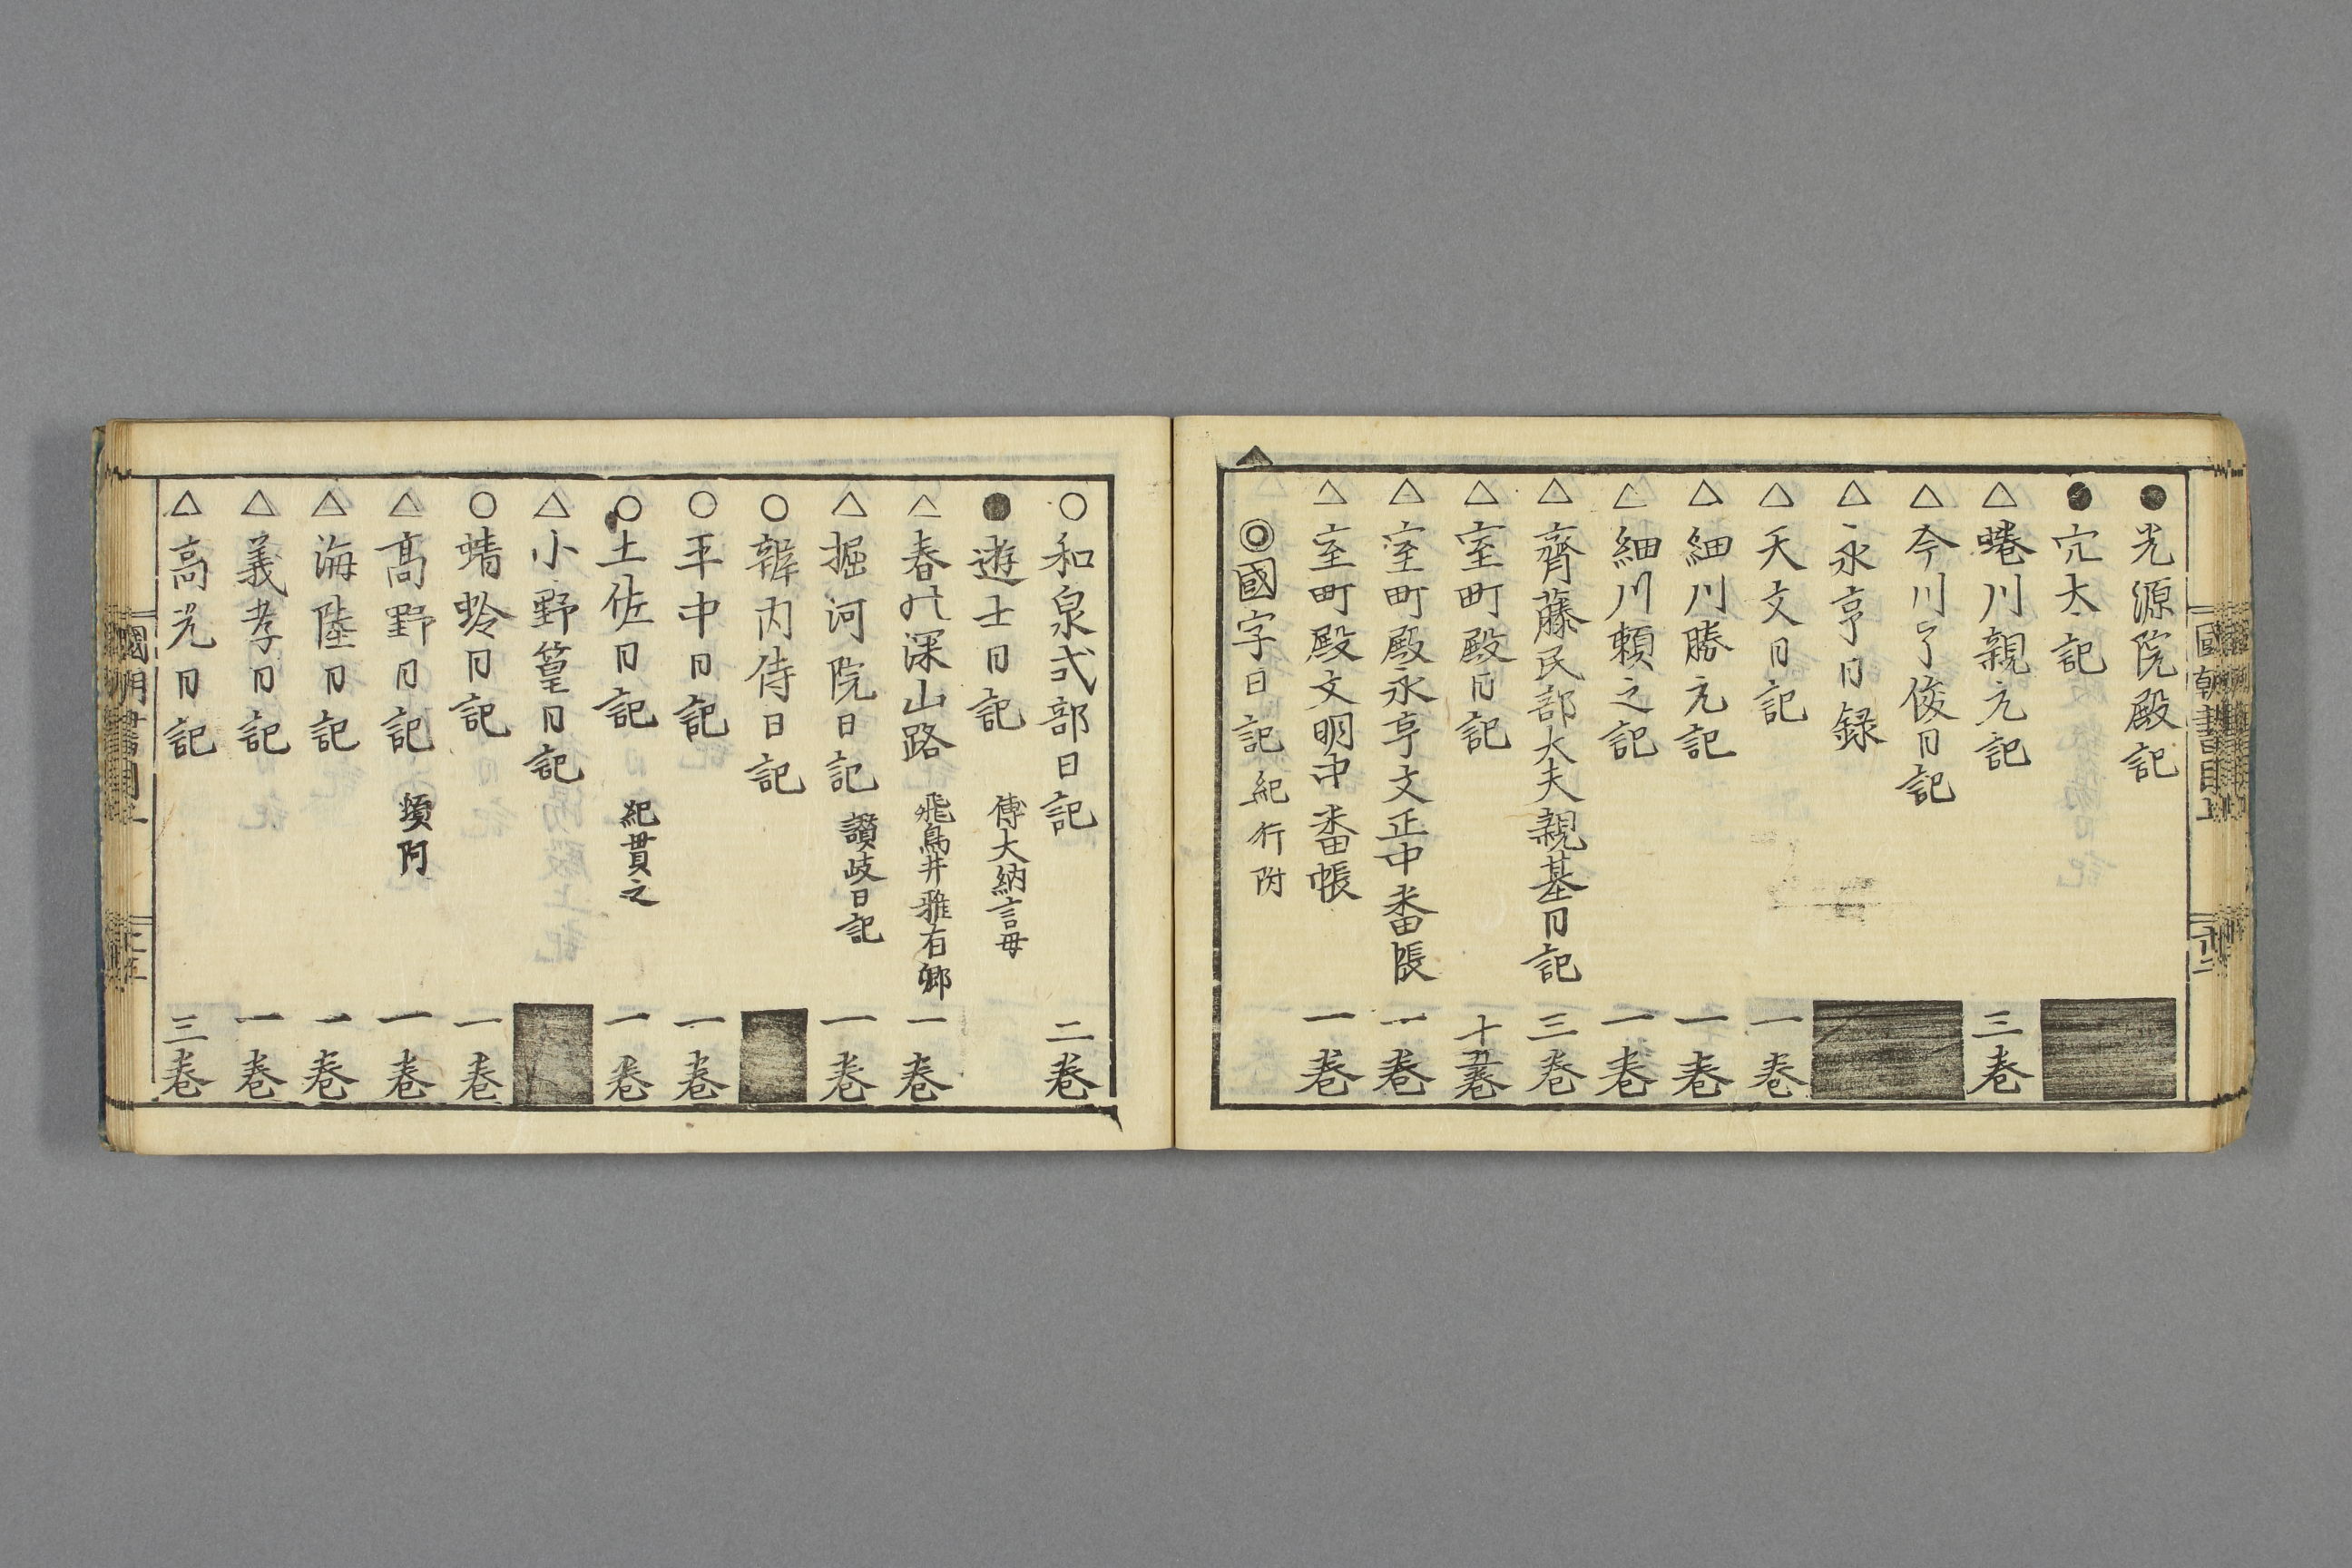 ●光源院殿記
●穴太記
△蜷川親元記 三巻
△今川了俊日記
△永亨日録
△天文日記 一巻
△細川勝元記 一巻
△細川頼之記 一巻
△齊藤民部大夫親基日記 三巻
△室町殿日記 十巻
△室町殿永亨文正中番帳 一巻
△室町殿文明中番帳 一巻
◎國字日記 紀行附
○和泉式部日記 二巻
●遊士日記 傅大納言母
△春の深山路 飛鳥井雅有卿 一巻
△掘河院日記 讃岐日記 一巻
○辨内侍日記
○平中日記 一巻
○土佐日記 紀貫之 一巻
△小野篁日記
○蜻蛉日記 一巻
△髙野日記 頓阿 一巻
△海陸日記 一巻
△義孝日記 一巻
△高光日記 三巻
國朝書目上
國朝書目上